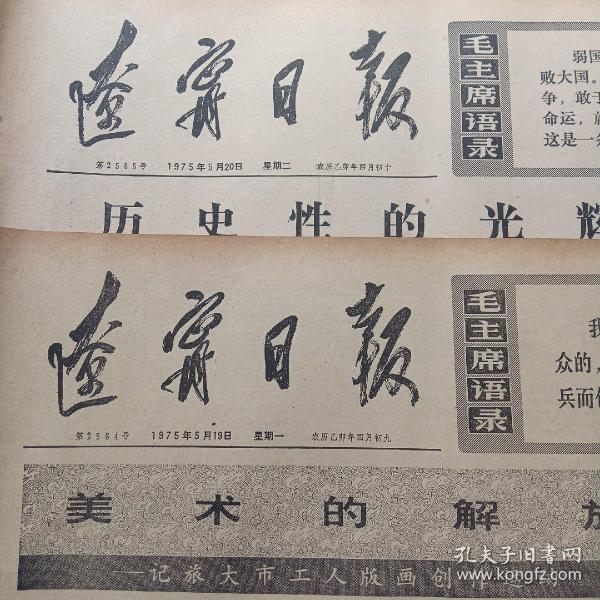 遼寧日報
第2565号 1975年5月20日 星期二 农历乙卯年四月初十
毛主席语录
弱国
败大国。
争，敢于
命运，
这是一条
历史性的光辉
遼寧日報
第2564号 1975年5月19日 星期一 农历乙卯年四月初九
毛主席语录
我
众的，
兵而
美术的解放
——记旅大市工人版画创作
孔夫子旧书网
www.kongfz.com